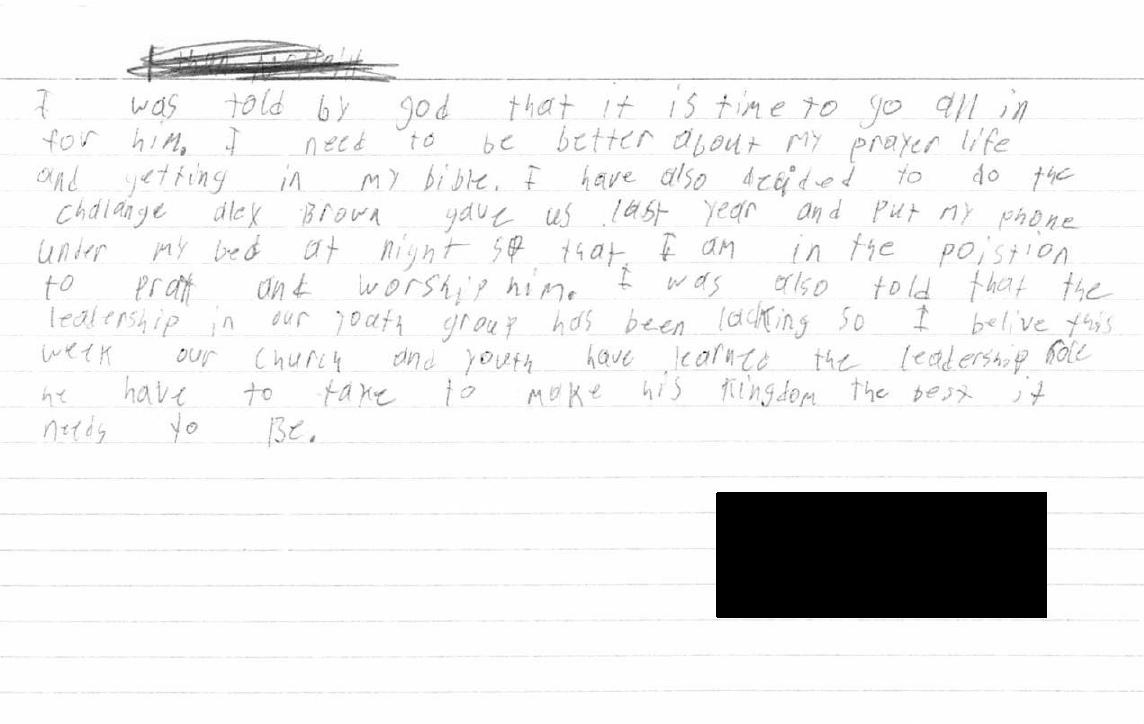 I was told by god that it is time to go all in
for him. I need to be better about my prayer life
and getting in my bible. I have also decided to do the
challange alex Brown gave us last year and put my phone
under my bed at night so that I am in the poistion
to pratt and worship him. I was also told that the
leadership in our youth group has been lacking so I belive this
week our church and youth have learned the leadership role
he have to take to make his kingdom the best it
needs yo Be.